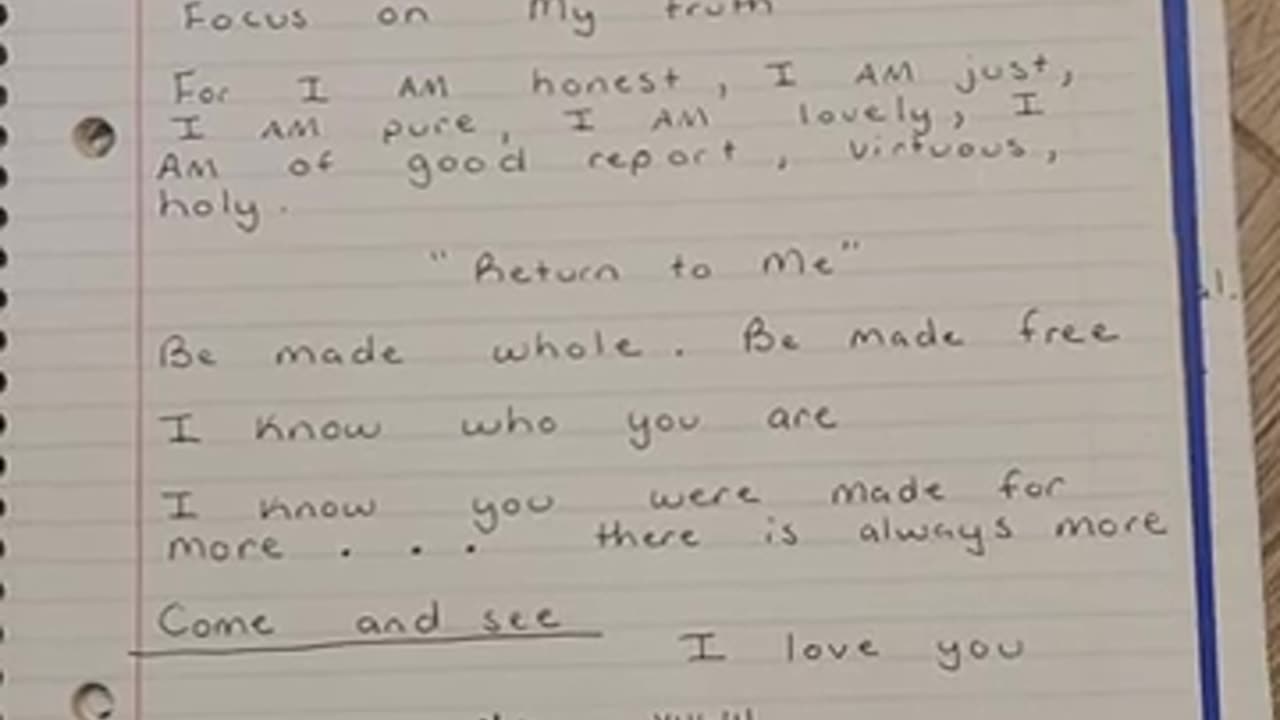 Focus on My truth
For I AM honest, I AM just,
I AM pure, I AM lovely, I
AM of good report, virtuous,
holy.
"Return to Me"
Be made whole. Be made free
I know who you are
I know you were made for
more . . . there is always more
Come and see
I love you